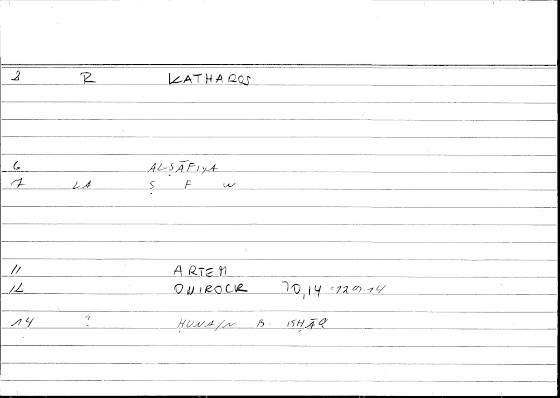 3 R KATHAROS
6 AL-ṢĀFIYA
7 LA Ṣ F W
11 ARTEM
12 ONIROCR 70,14
14 ? ḤUNAIN B. ISḤĀQ